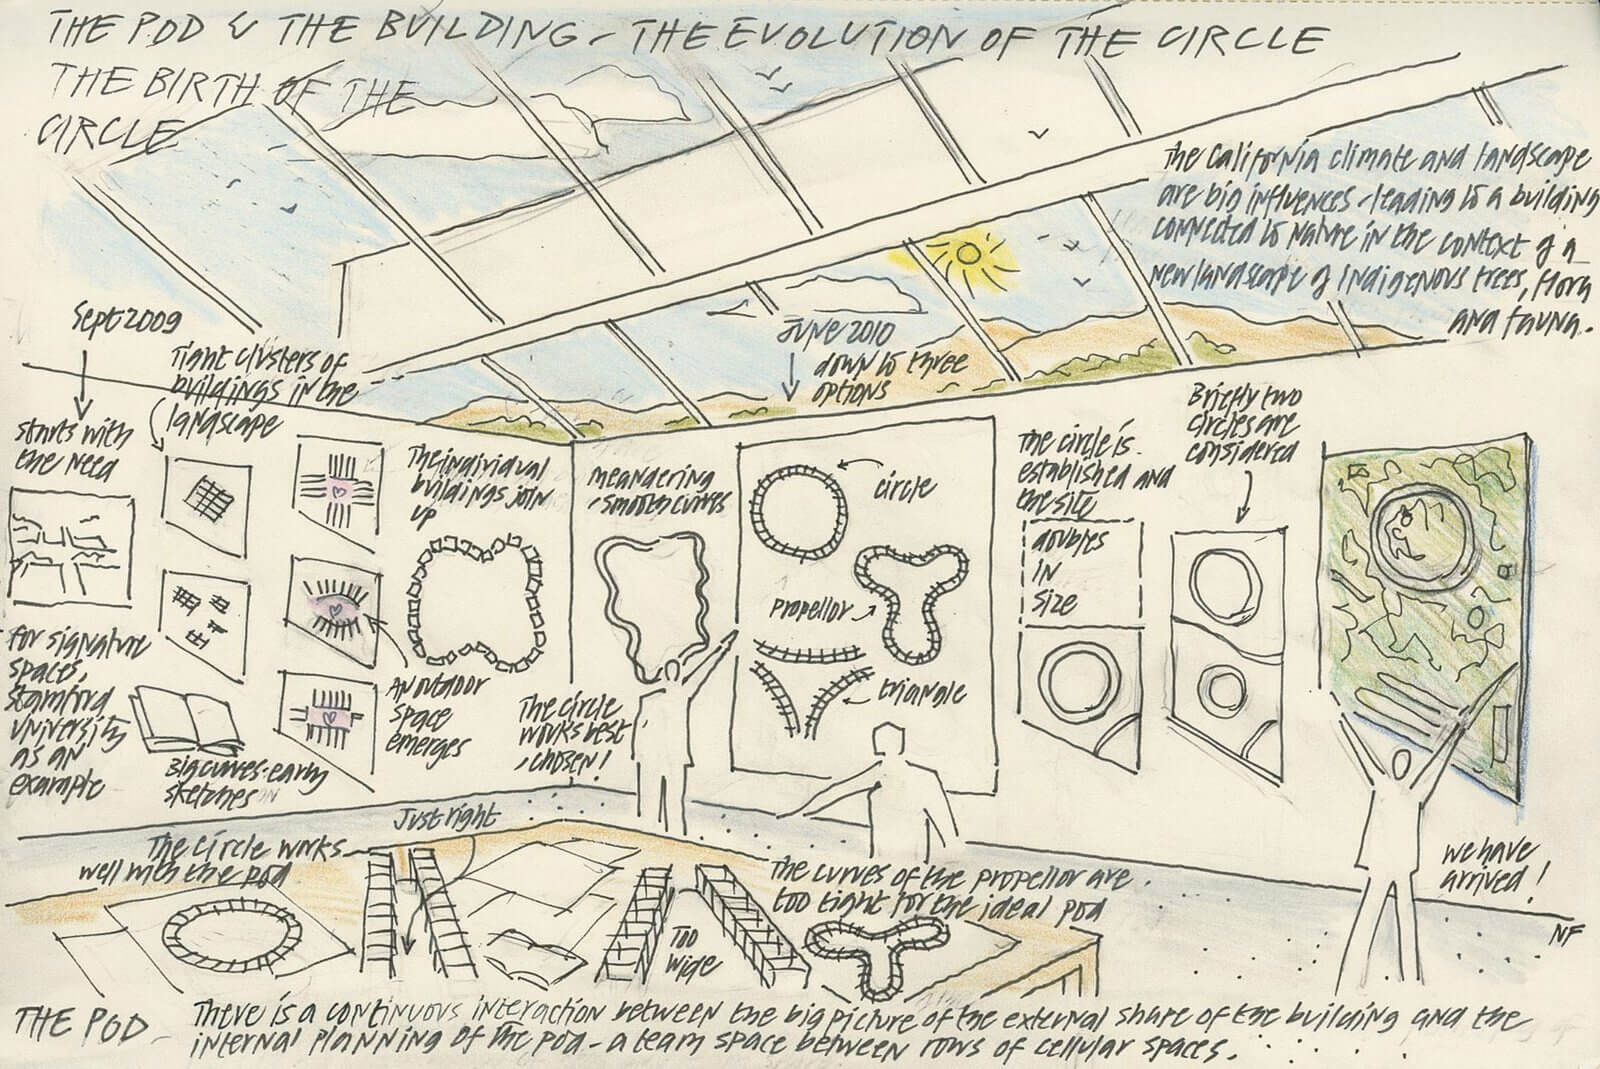 THE POD & THE BUILDING - THE EVOLUTION OF THE CIRCLE
THE BIRTH OF THE
CIRCLE
The California climate and landscape
are big influences - leading to a building
connected to nature in the context of a
new landscape of indigenous trees, flora
and fauna.
Sept 2009
starts with
the need
for signature
spaces,
Stamford
University
as an
example
Tight clusters of
buildings in the
landscape
Big curves - early
sketches
An outdoor
space
emerges
The individual
buildings join
up
meandering
- smooth curves
The circle
works best
, chosen!
June 2010
down to three
options
circle
propellor
triangle
The circle is
established and
the site
doubles
in
size
Briefly two
circles are
considered
we have
arrived!
NF
The circle works
well with the pod
Just right
Too
wide
The curves of the propellor are
too tight for the ideal pod
THE POD - There is a continuous interaction between the big picture of the external shape of the building and the
internal planning of the pod - a team space between rows of cellular spaces.